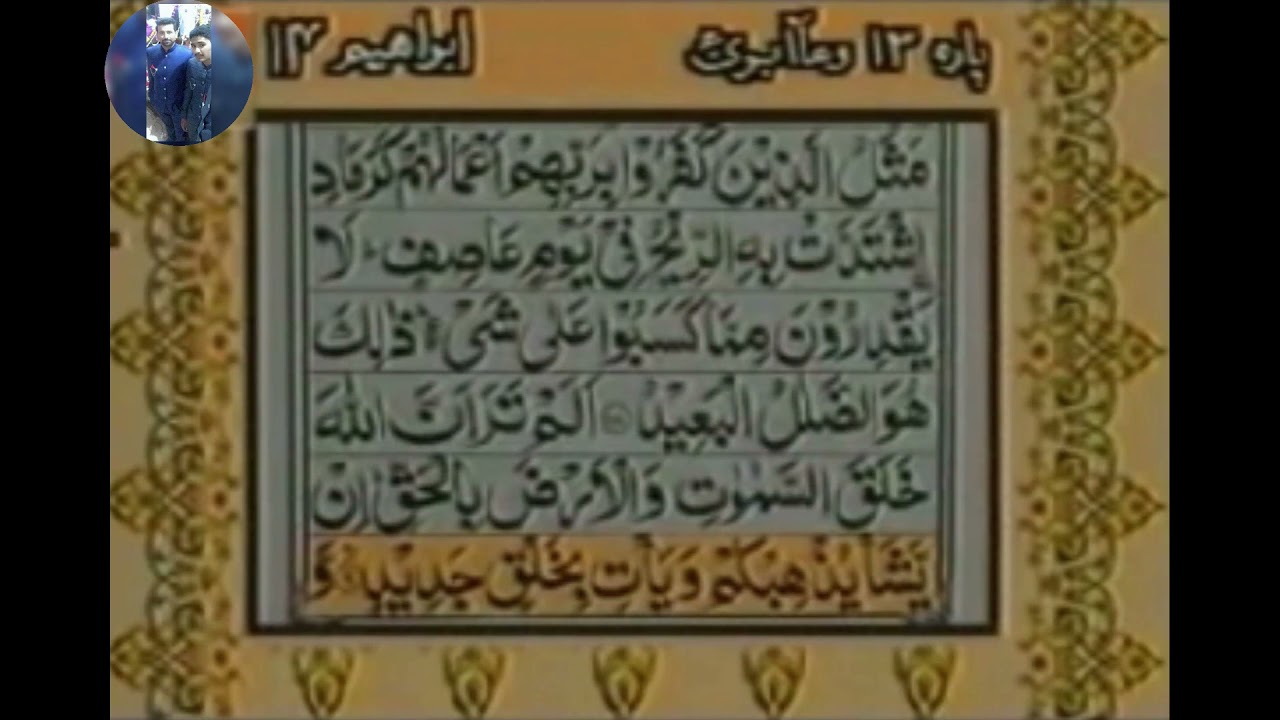 پاره ١٣ وما ابرئ ابراهيم ١٤
مَثَلُ الَّذِيْنَ كَفَرُوْا بِرَبِّهِمْ اَعْمَالُهُمْ كَرَمَادِ
اِۨشْتَدَّتْ بِهِ الرِّيْحُ فِيْ يَوْمٍ عَاصِفٍ ؕ لَا
يَقْدِرُوْنَ مِمَّا كَسَبُوْا عَلٰى شَيْءٍ ؕ ذٰلِكَ
هُوَ الضَّلٰلُ الْبَعِيْدُ ۝ اَلَمْ تَرَ اَنَّ اللّٰهَ
خَلَقَ السَّمٰوٰتِ وَالْاَرْضَ بِالْحَقِّ ؕ اِنْ
يَّشَاْ يُذْهِبْكُمْ وَيَاْتِ بِخَلْقٍ جَدِيْدٍ ۝ وَّ